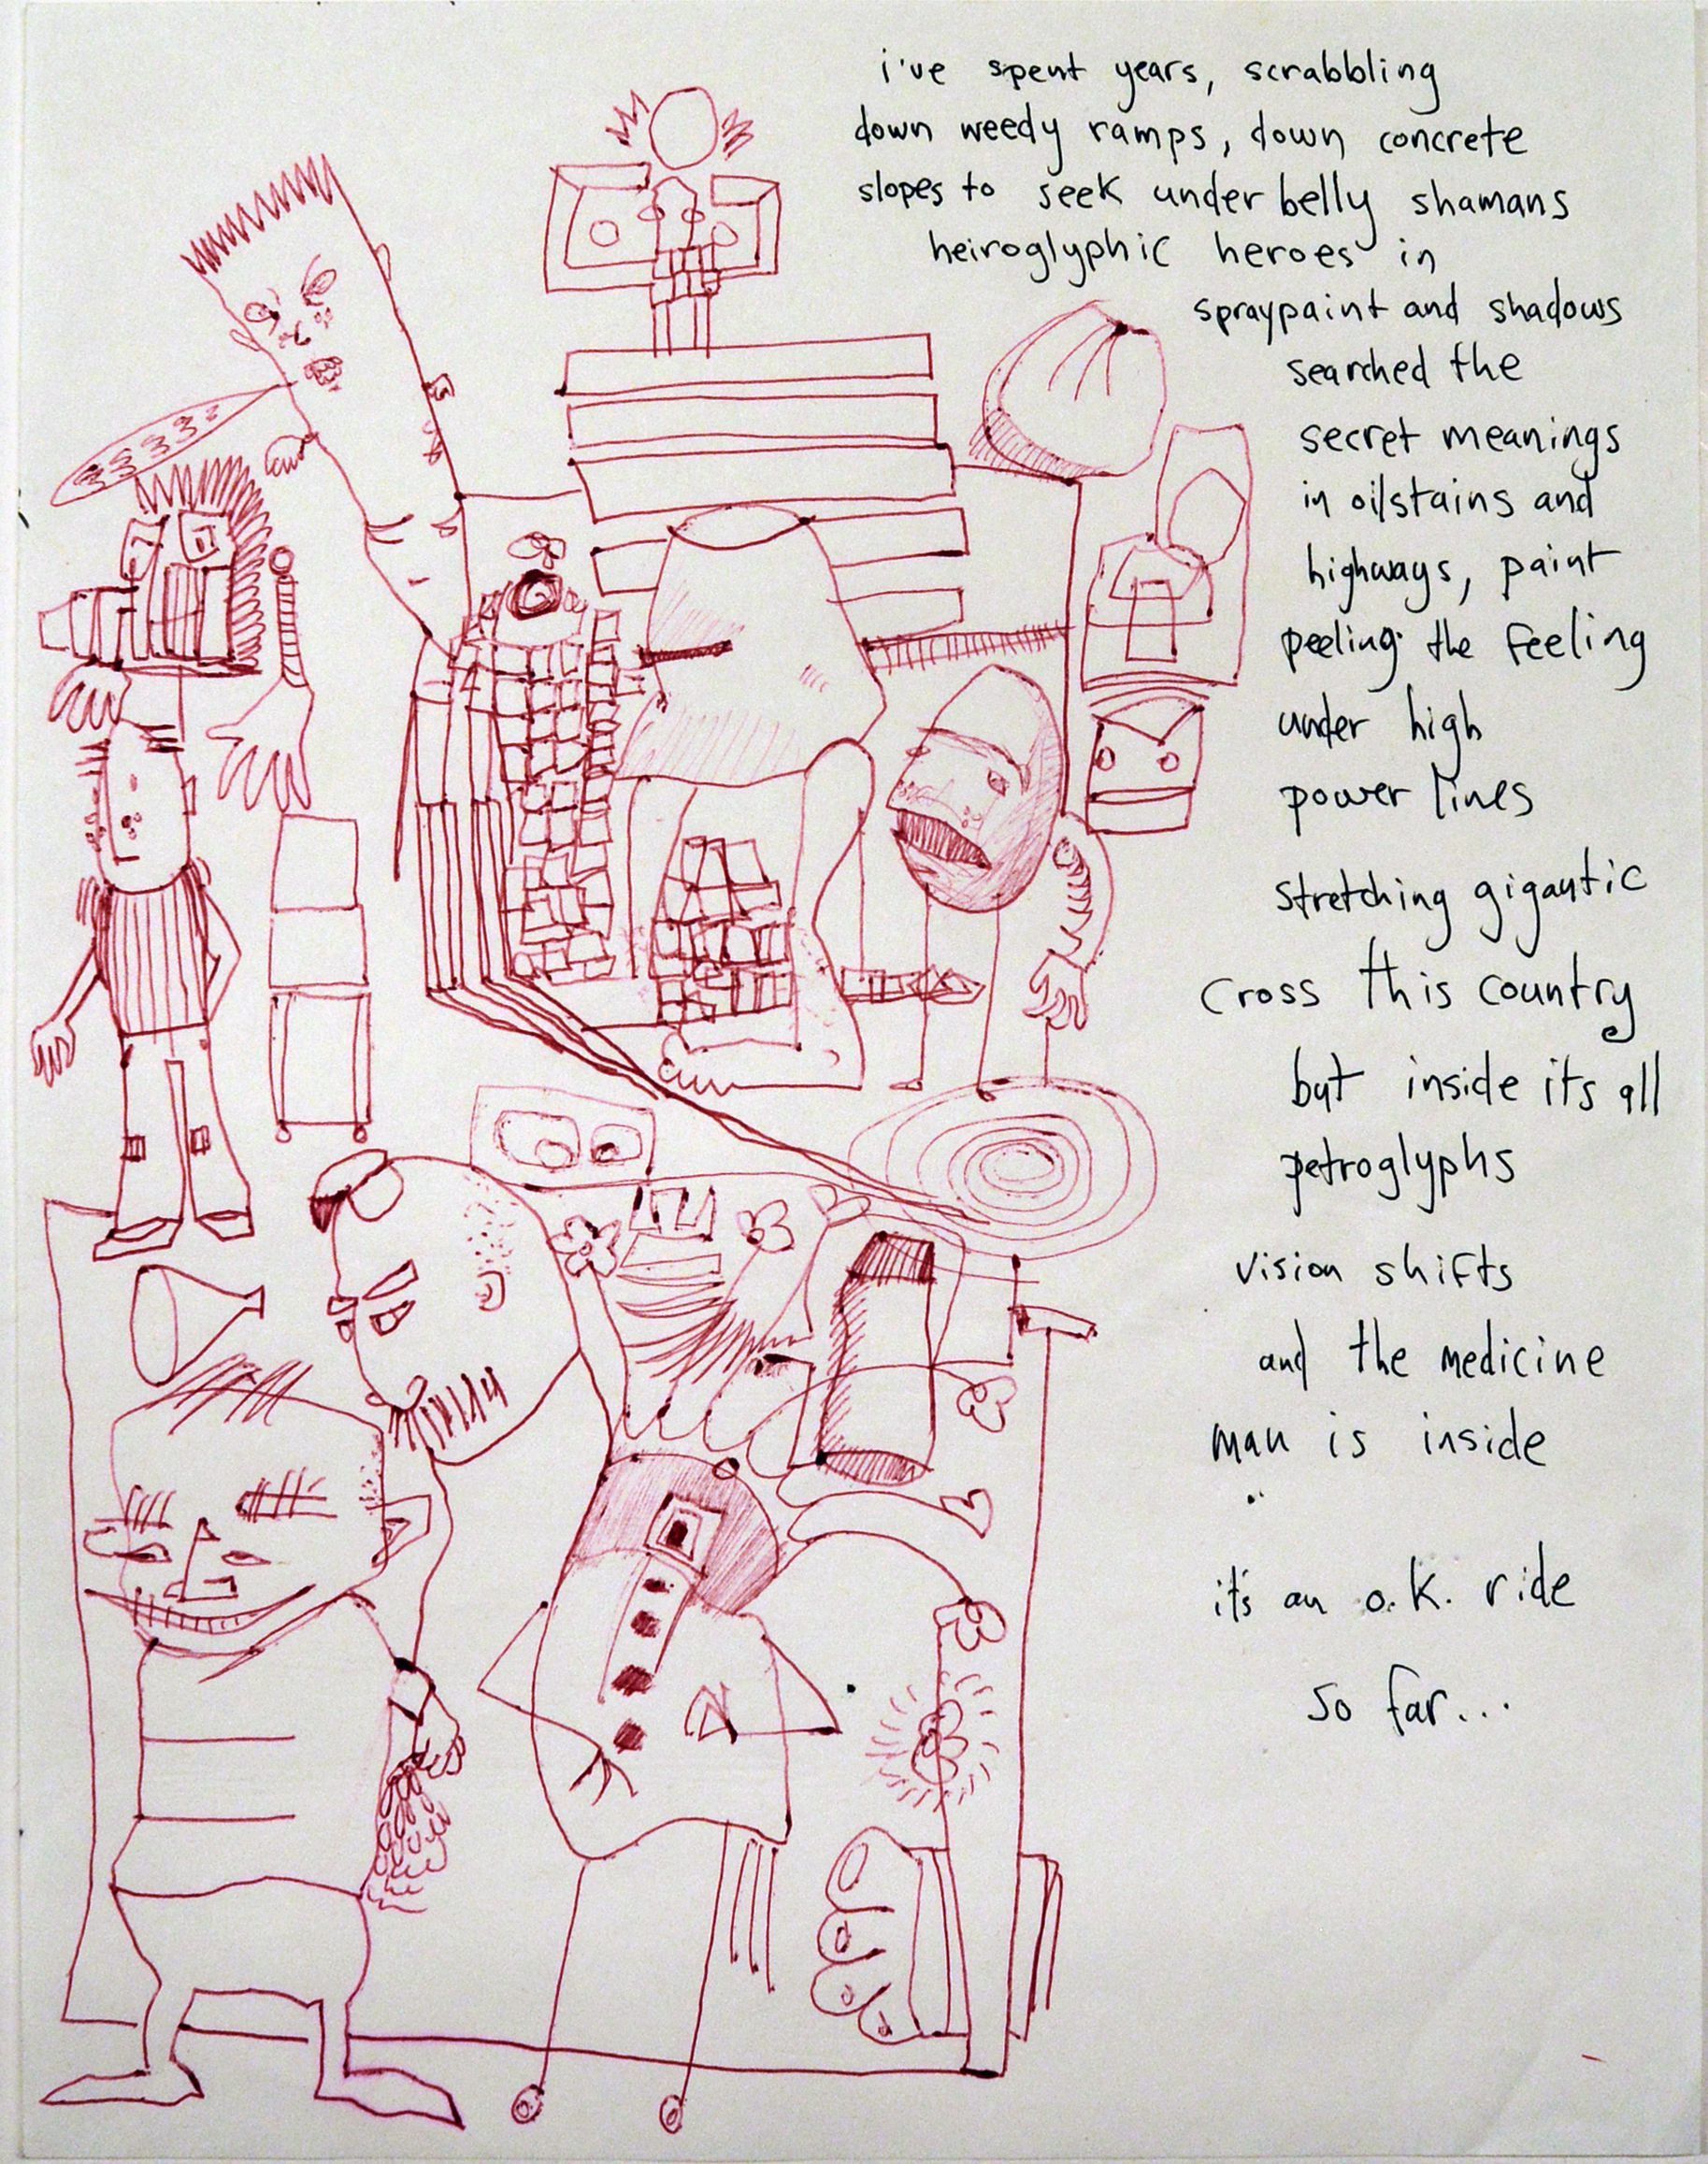 i've spent years, scrabbling
down weedy ramps, down concrete
slopes to seek under belly shamans
heiroglyphic heroes in
spraypaint and shadows
searched the
secret meanings
in oilstains and
highways, paint
peeling the feeling
under high
power lines
stretching gigantic
cross this country
but inside its all
petroglyphs
vision shifts
and the medicine
man is inside
it's an o.k. ride
so far...